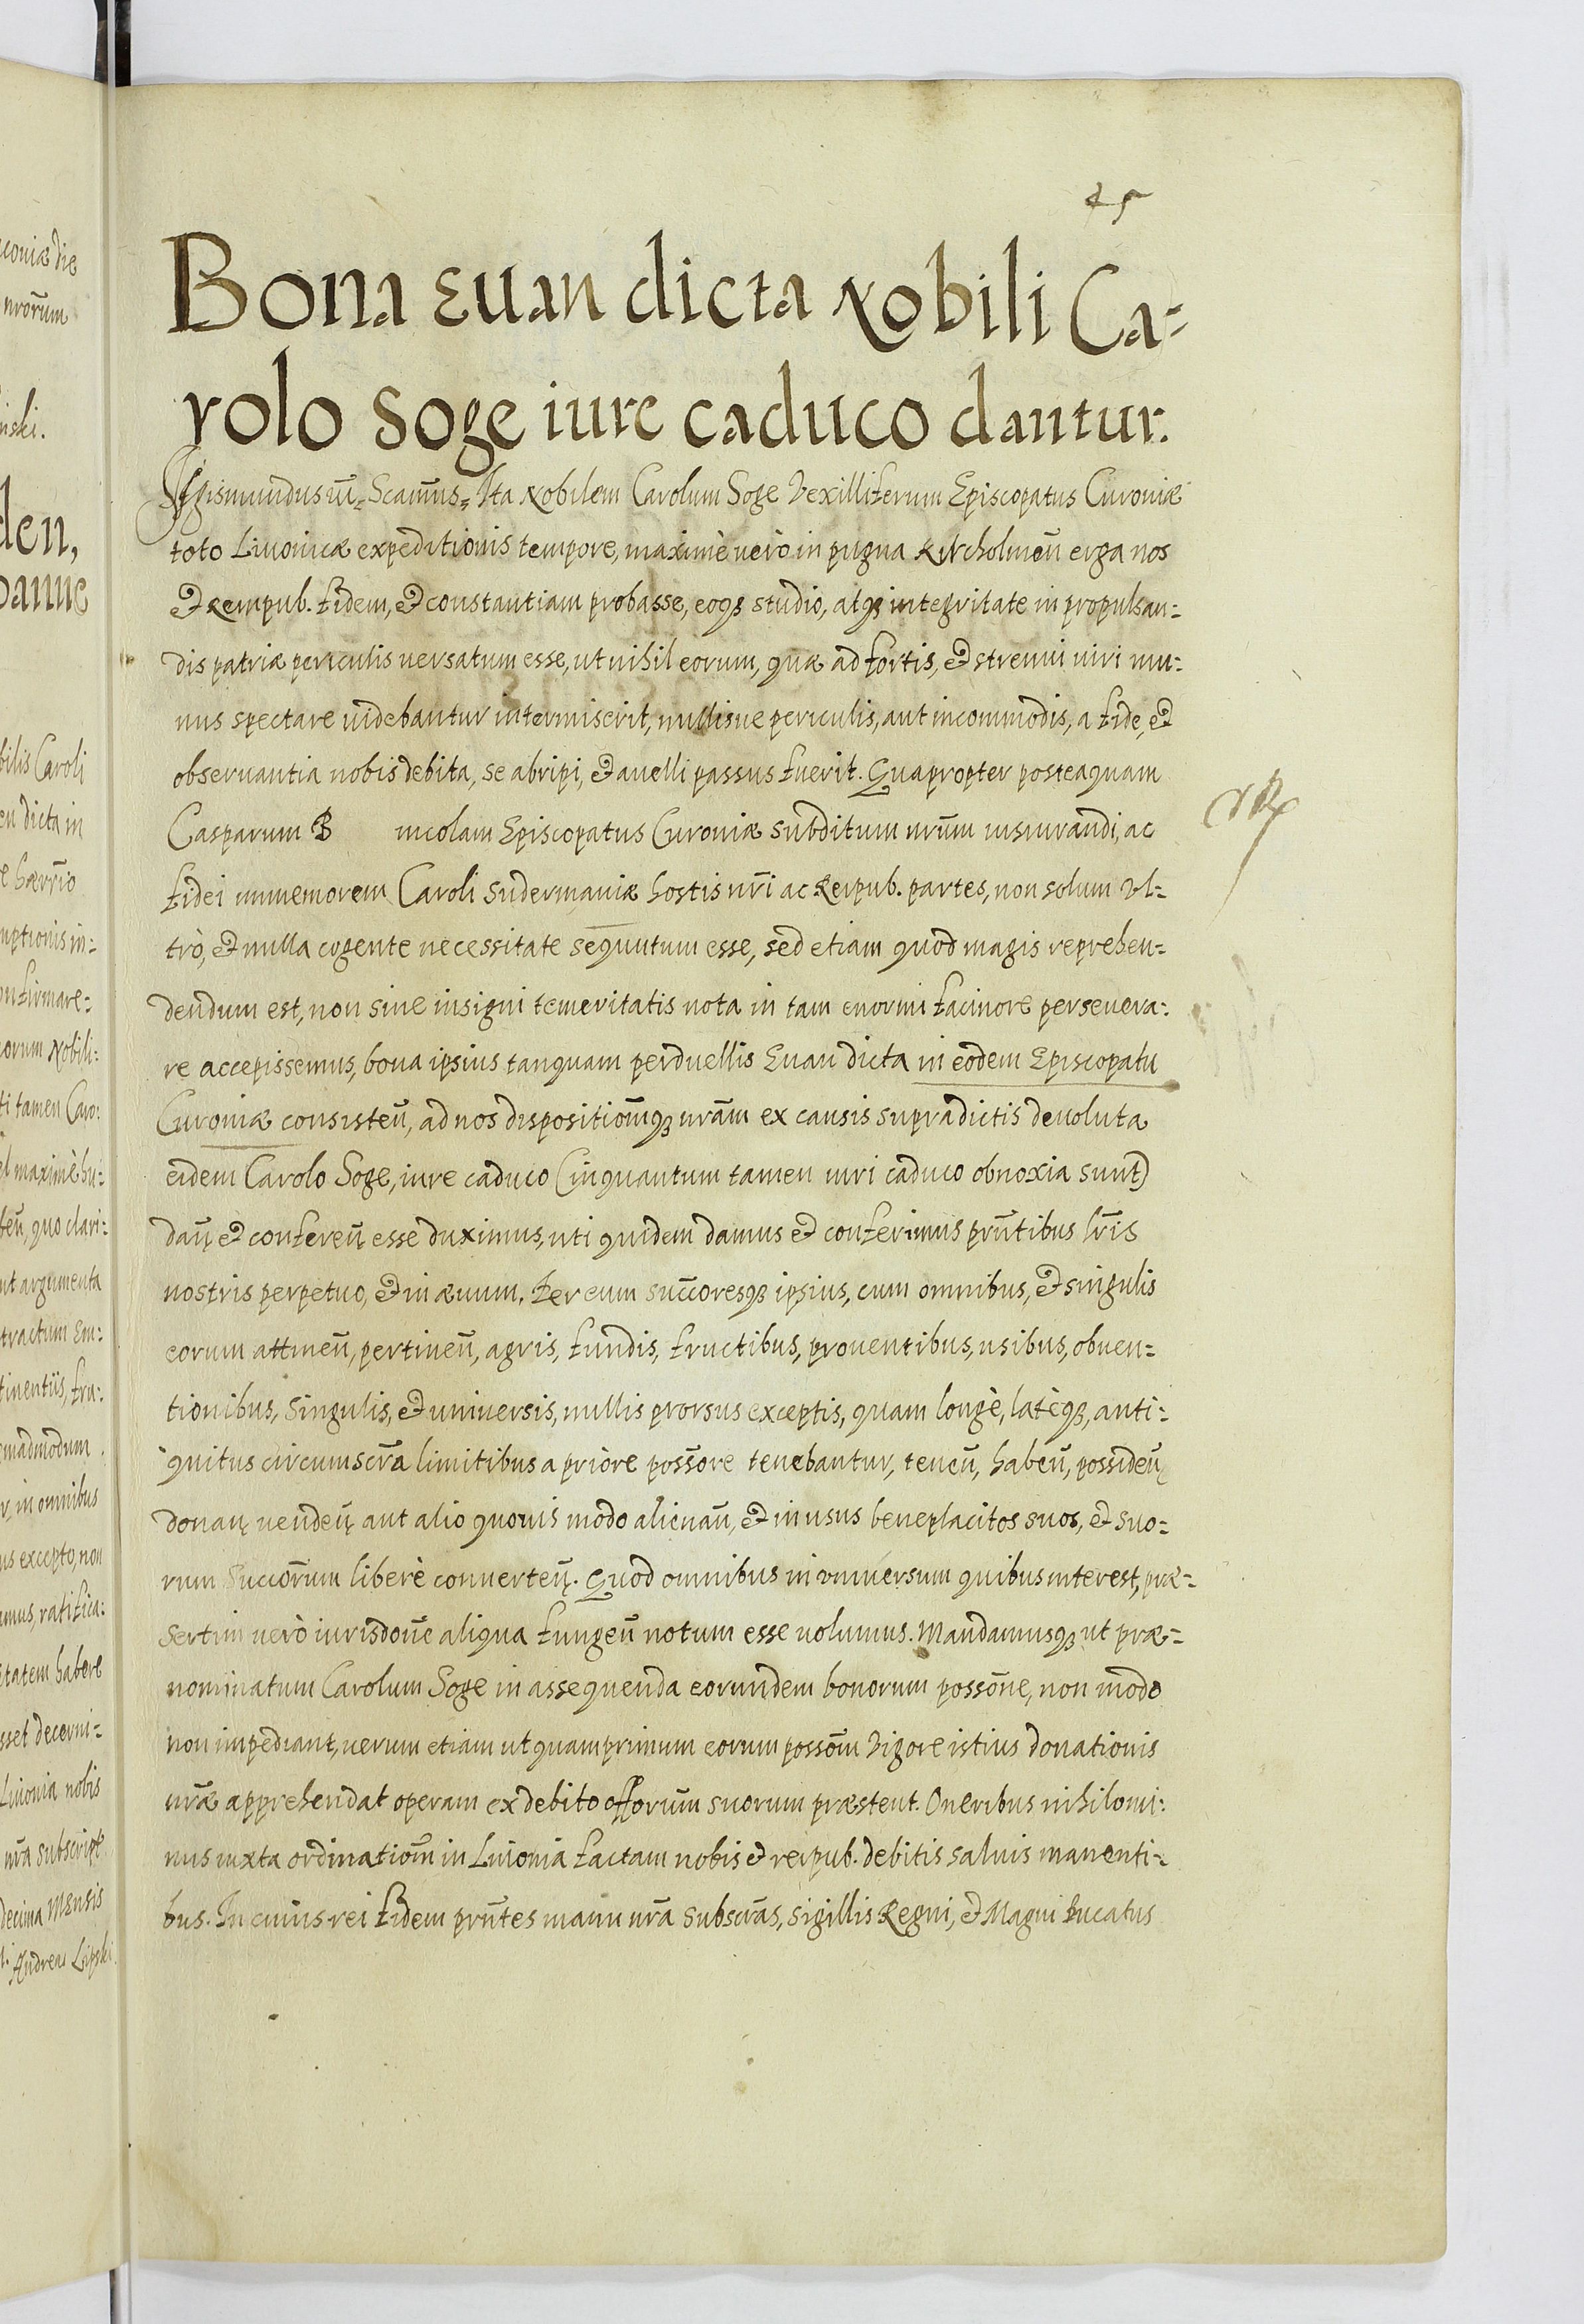 45
Bona Euan dicta Nobili Ca-
rolo Soge iure caduco dantur.
Sigismundus iii. Scamus. Ita Nobilem Carolum Soge Vexilliferum Episcopatus Curoniæ
toto Liuonicæ expeditionis tempore, maximè uerò in pugna Kircholmeū erga nos
et Rempub. fidem, et constantiam probasse, eoqз studio, atqз integritate in propulsan-
dis patriæ periculis uersatum esse, ut nihil eorum, quæ ad fortis, et strenui uiri mu-
nus spectare uidebantur intermiserit, nullisue periculis, aut incommodis, a fide, et
obseruantia nobis debita, se abripi, et auelli passus fuerit. Quapropter posteaquam
Casparum B incolam Episcopatus Curoniæ subditum nr̃um iusiurandi, ac
fidei immemorem Caroli Sudermaniæ hostis nr̃i ac Reipub. partes, non solum vl-
trò, et nulla cogente necessitate sequutum esse, sed etiam quod magis reprehen-
dendum est, non sine insigni temeritatis nota in tam enormi facinore perseuera-
re accepissemus, bona ipsius tanquam perduellis Euan dicta in eodem Episcopatu
Curoniæ consisteū, ad nos dispositiom̃qз nr̃am ex causis supradictis deuoluta
eidem Carolo Soge, iure caduco (inquantum tamen iuri caduco obnoxia sunt)
daņ et confereņ esse duximus, uti quidem damus et conferimus pñtibus lr̃is
nostris perpetuo, et in æuum. Per eum succoresqз ipsius, cum omnibus, et singulis
eorum attineū, pertineū, agris, fundis, fructibus, prouentibus, usibus, obuen-
tionibus, singulis, et uniuersis, nullis prorsus exceptis, quam longè, latèqз, anti-
quitus circumscr̃a limitibus a priore possõre tenebantur, teneū, habeū, possideū,
donaņ uendeņ aut alio quouis modo alienaū, et in usus beneplacitos suos, et suo-
rum succor̃um liberè conuerteņ. Quod omnibus in vniuersum quibus interest, præ-
sertim uerò iurisdoñe aliqua fungeū notum esse uolumus. Mandamusqз ut præ-
nominatum Carolum Soge in assequenda eorundem bonorum possoñe, non modo
non impediant, uerum etiam ut quamprimum eorum possom̃ vigore istius donationis
nr̃æ apprehendat operam ex debito offorum suorum præstent. Oneribus nihilomi-
nus iuxta ordinatiom̃ in Liuonia factam nobis et reipub. debitis saluis manenti-
bus. In cuius rei fidem pñtes manu nr̃a subscr̃as, sigillis Regni, et Magni Ducatus